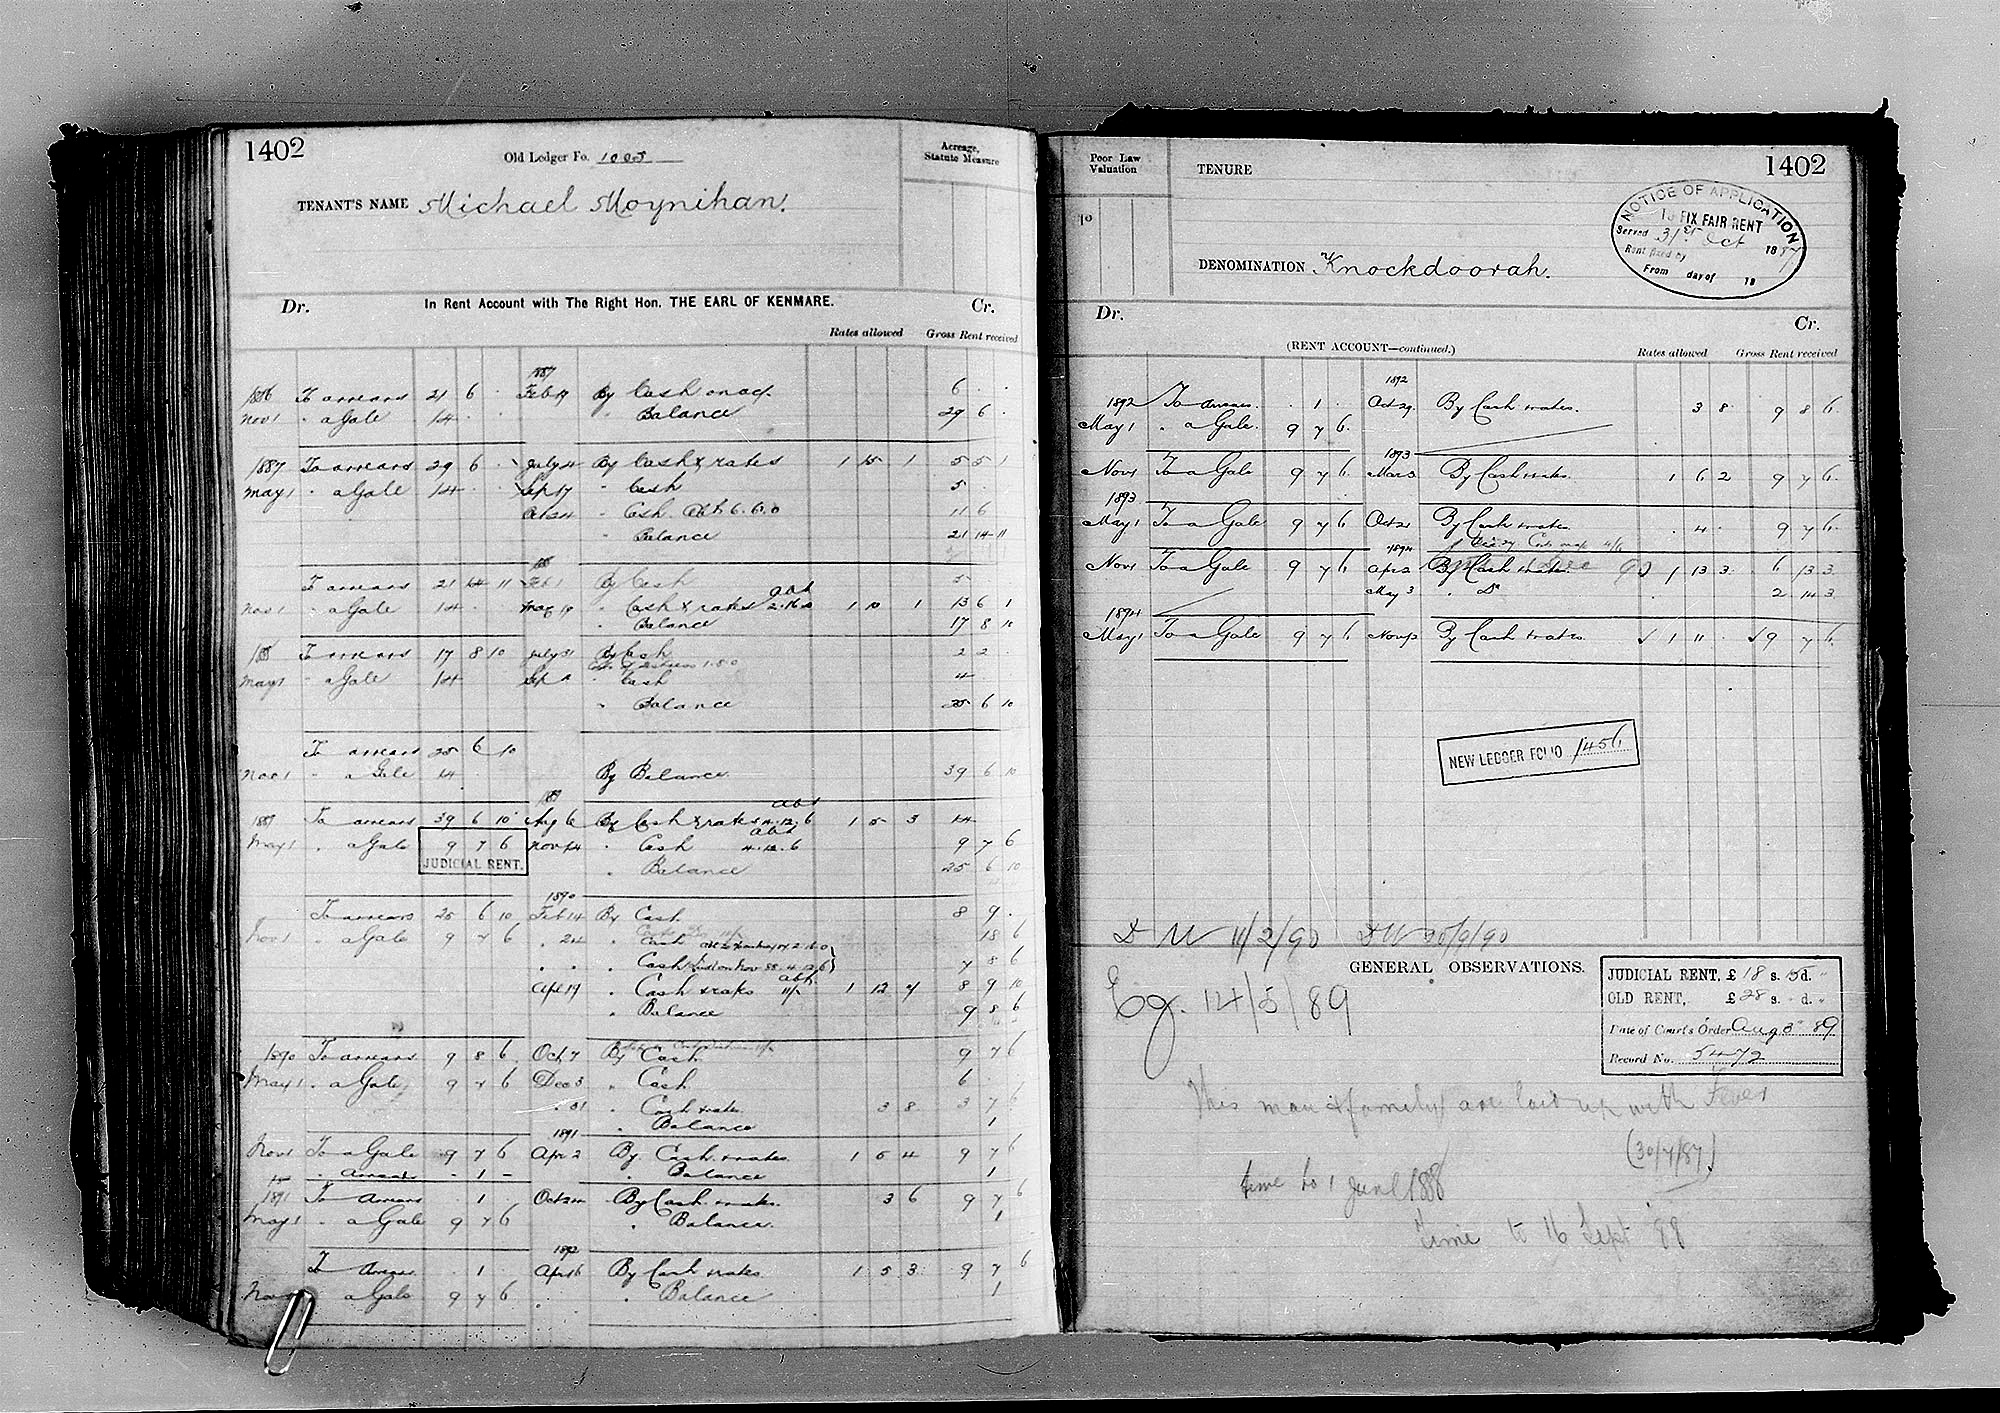 1402
Old Ledger Fo. 1005
Acreage, Statute Measure
TENANT'S NAME Michael Moynihan.
Dr. In Rent Account with The Right Hon. THE EARL OF KENMARE. Cr.
Rates allowed Gross Rent received
1887
1886 To arrears 21 6 . Feb 19 By Cash on acf. 6 . .
Nov 1 " a Gale 14 . " Balance 29 6 .
1887 To arrears 29 6 . July 4 By Cash & rates 1 15 1 5 5 1
May 1 " a Gale 14 . . Sep 17 " Cash 5 . .
Oct 24 " Cash Abt 6.6.0 11 6
" Balance 21 14 11
To arrears 21 14 11 Feb 1 By Cash 5
Nov 1 " a Gale 14 . . May 19 " Cash & rates abt 2.16.0 1 10 1 13 6 1
" Balance 17 8 10
To arrears 17 8 10 July 31 By Cash 2 2 .
May 1 " a Gale 14 Sep " Cash 4
" Balance 25 6 10
To arrears 25 6 10
Nov 1 " a Gale 14 By Balance 39 6 10
1889
1889 To arrears 39 6 10 Aug 6 By Cash & rates abt 4.12.6 1 5 3 14
May 1 " a Gale 9 7 6 Nov 14 " Cash abt 4.12.6 9 7 6
JUDICIAL RENT.
" Balance 25 6 10
1890
To arrears 25 6 10 Feb 14 By Cash 8 9 .
Nov 1 " a Gale 9 7 6 " 24 " Cash 18 6
" " " Cash 7 8 6
Apr 19 " Cash & rates abt. 1 12 7 8 9 10
" Balance 9 8 6
1890 To arrears 9 8 6 Oct 7 By Cash 9 7 6
May 1 " a Gale 9 7 6 Dec 3 " Cash 6 .
" 31 " Cash & rates 3 8 3 7 6
" Balance 1
1891
Nov 1 To a Gale 9 7 6 Apr 2 By Cash & rates 1 5 4 9 7 6
" Arrears - 1 - " Balance 1
1891 To Arrears . 1 . Oct 24 By Cash & rates. 3 6 9 7 6
May 1 " a Gale 9 7 6 " Balance. 1
1892
To Arrears . 1 . Apr 6 By Cash & rates 1 5 3 9 7 6
Nov 1 a Gale 9 7 6 " Balance 1
Poor Law Valuation
TENURE
1402
NOTICE OF APPLICATION
To FIX FAIR RENT
Served 31st Oct 1887
Rent fixed by
From day of 18
DENOMINATION Knockdoorah.
Dr. Cr.
(RENT ACCOUNT—continued.)
Rates allowed Gross Rent received
1892
1892 To Arrears. . 1 . Oct 29 By Cash & rates. 3 8 9 8 6
May 1 " a Gale. 9 7 6
1893
Nov 1 To a Gale 9 7 6 Mar 3 By Cash & rates. 1 6 2 9 7 6
1893
May 1 To a Gale 9 7 6 Oct 21 By Cash & rates . 4 . 9 7 6
1894
Nov 1 To a Gale 9 7 6 Apr 2 By Cash & rates. 1 13 3 6 13 3
May 3 " Do 2 14 3
1894
May 1 To a Gale 9 7 6 Nov 12 By Cash & rates 1 11 . 9 7 6
NEW LEDGER FOLIO 1456
DW 11/2/90 DW 30/9/90
GENERAL OBSERVATIONS.
JUDICIAL RENT, £ 18 s. 15 d. "
OLD RENT, £ 28 s. " d. "
Date of Court's Order Aug 3 89
Record No. 5472
Eg. 14/5/89
This man & family are laid up with Fever
(30/7/87)
time to 1 June 1888
time to 16 Sept 88